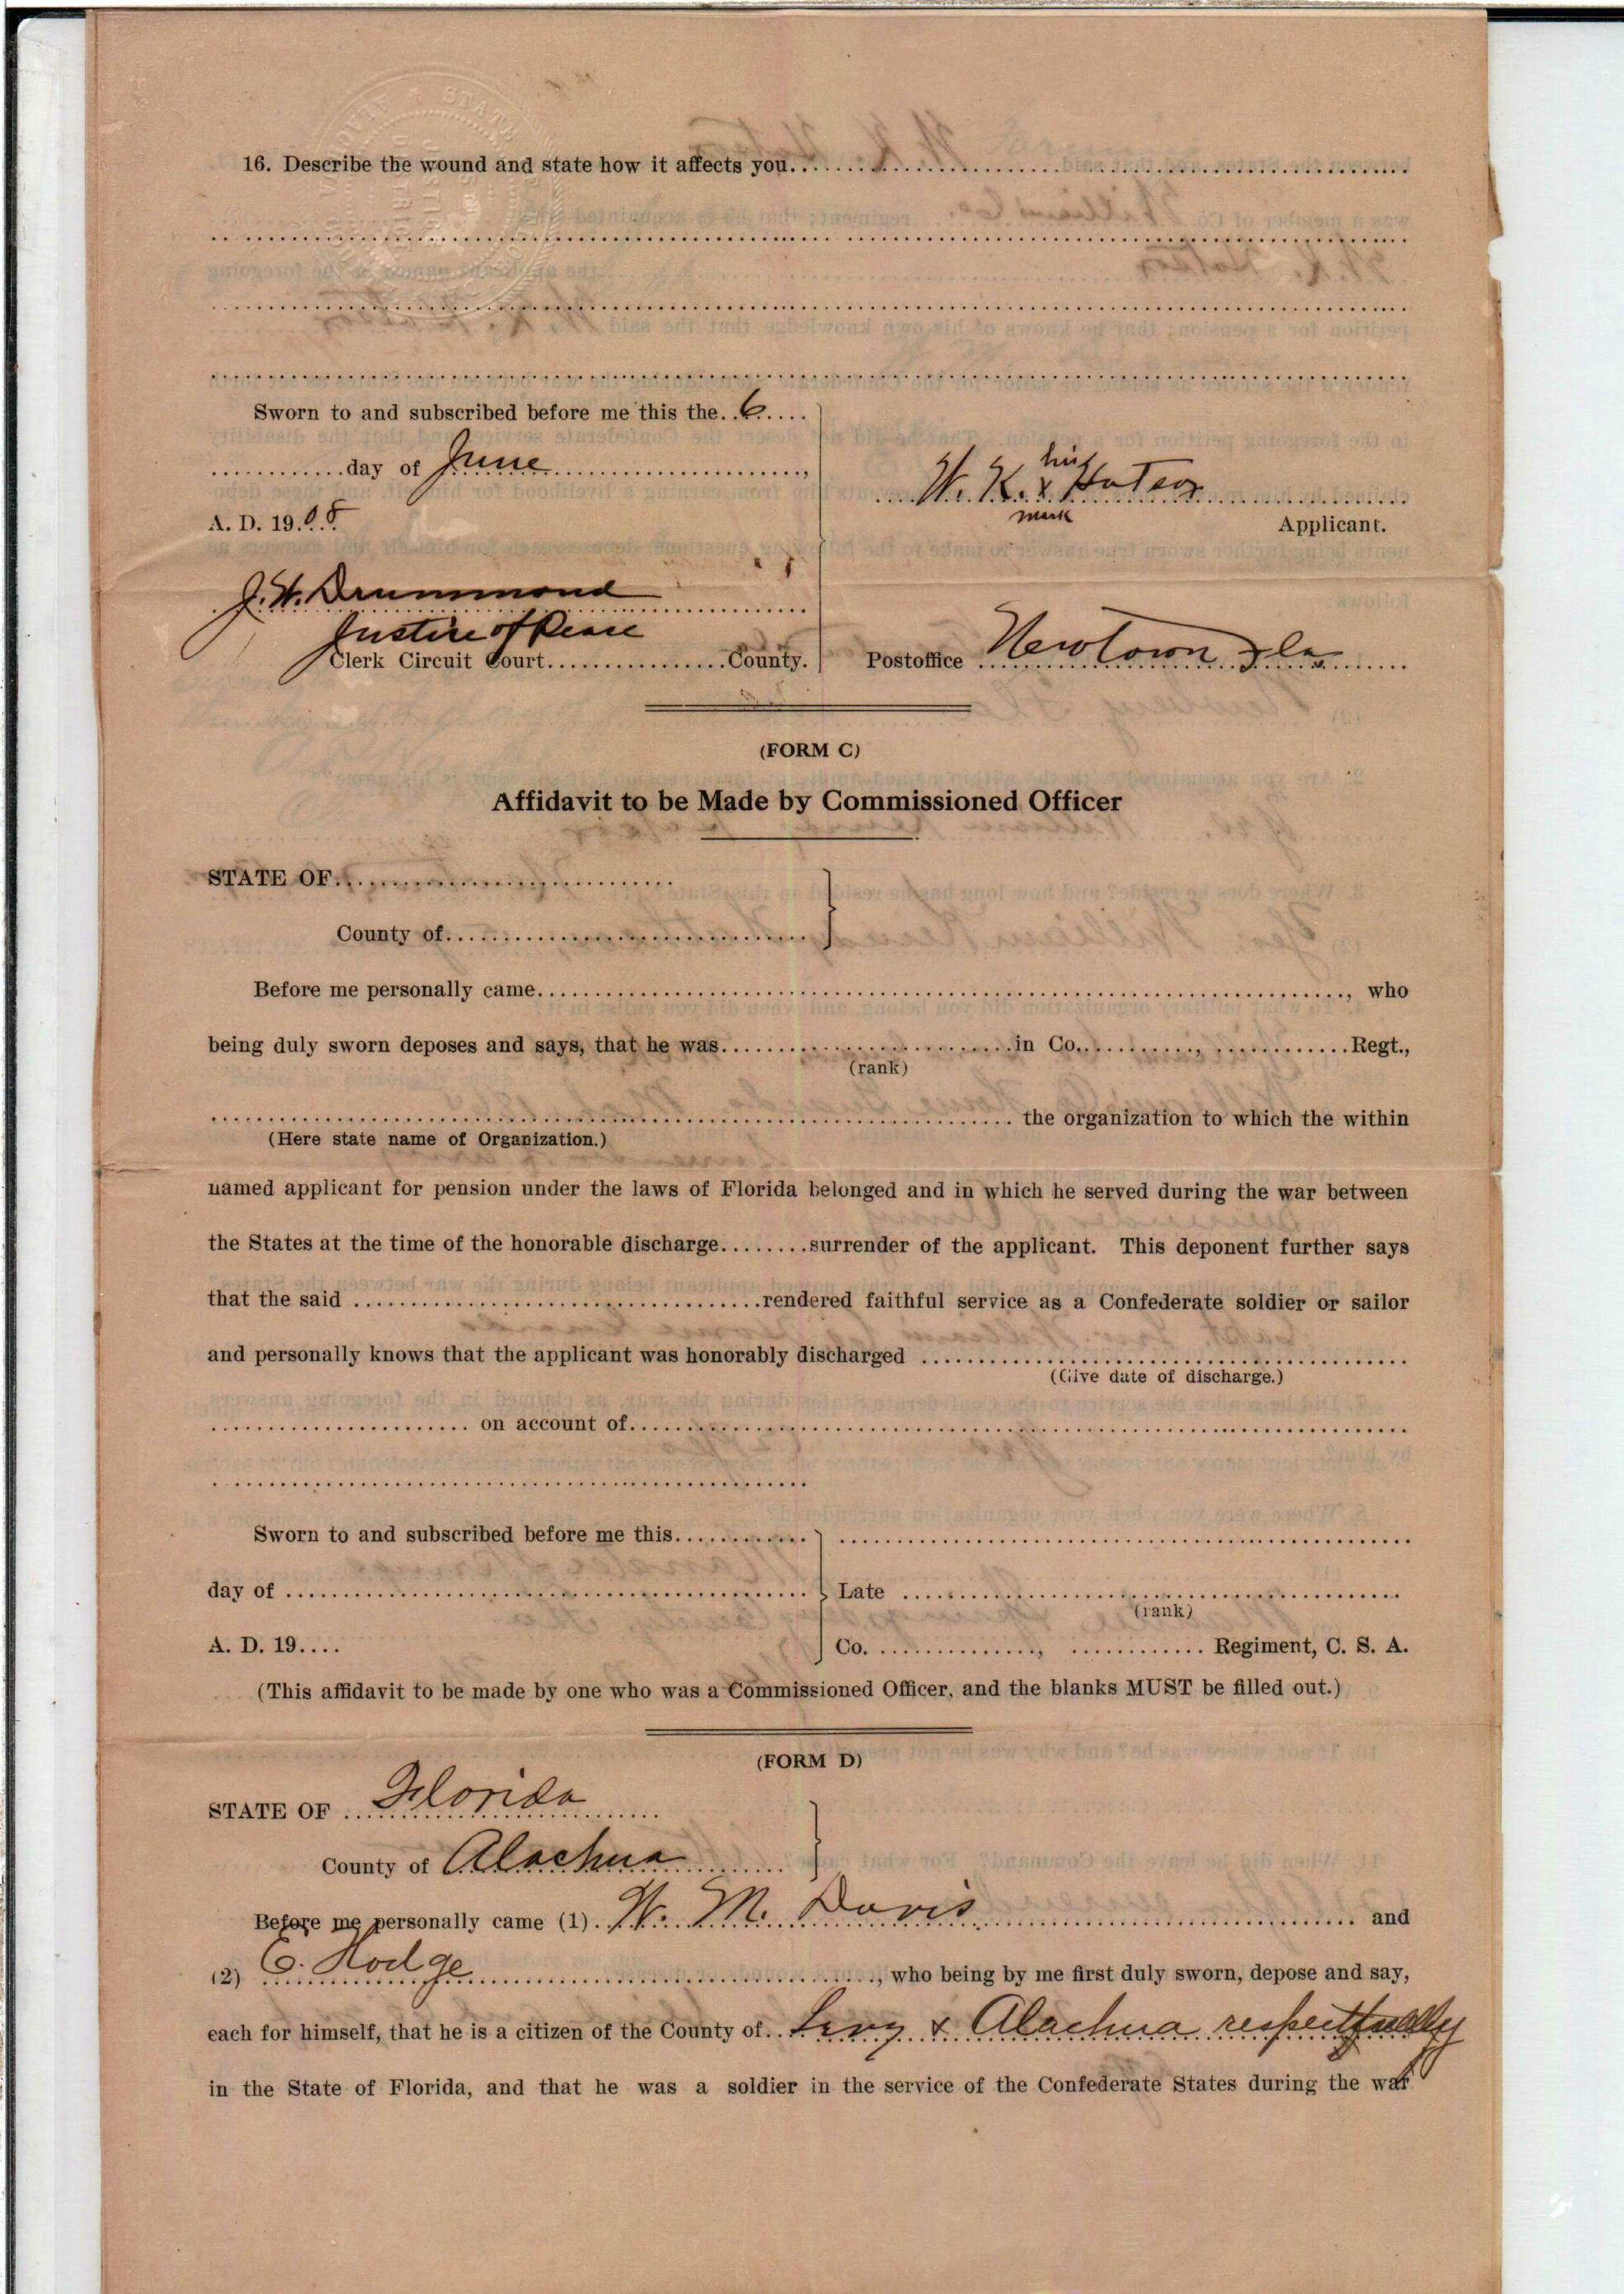 16. Describe the wound and state how it affects you
Sworn to and subscribed before me this the 6
day of June
A. D. 1908
his
W. K. x Hatson
mark
Applicant.
J. W. Drummond
Justice of Peace
Clerk Circuit Court County.
Postoffice Newtown Fla
(FORM C)
Affidavit to be Made by Commissioned Officer
STATE OF
County of
Before me personally came , who
being duly sworn deposes and says, that he was in Co. , Regt.,
(rank)
the organization to which the within
(Here state name of Organization.)
named applicant for pension under the laws of Florida belonged and in which he served during the war between
the States at the time of the honorable discharge surrender of the applicant. This deponent further says
that the said rendered faithful service as a Confederate soldier or sailor
and personally knows that the applicant was honorably discharged
(Give date of discharge.)
on account of
Sworn to and subscribed before me this
day of
Late
(rank)
A. D. 19
Co. , Regiment, C. S. A.
(This affidavit to be made by one who was a Commissioned Officer, and the blanks MUST be filled out.)
(FORM D)
STATE OF Florida
County of Alachua
Before me personally came (1) W. M. Davis and
(2) E. Hodge , who being by me first duly sworn, depose and say,
each for himself, that he is a citizen of the County of Levy & Alachua respectfully
in the State of Florida, and that he was a soldier in the service of the Confederate States during the war